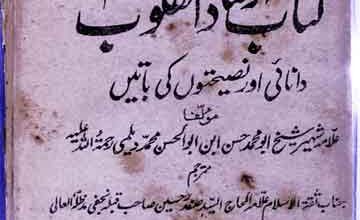 کتاب ارشاد القلوب
دانائی اور نصیحتوں کی باتیں
مؤلف
علامہ شہیر شیخ ابو محمد حسن ابن ابوالحسن محمد دیلمی رحمۃ اللہ علیہ
مترجم
جناب ثقۃ الاسلام علامہ الحاج السید صفدر حسین صاحب قبلہ نجفی مدظلہ العالی